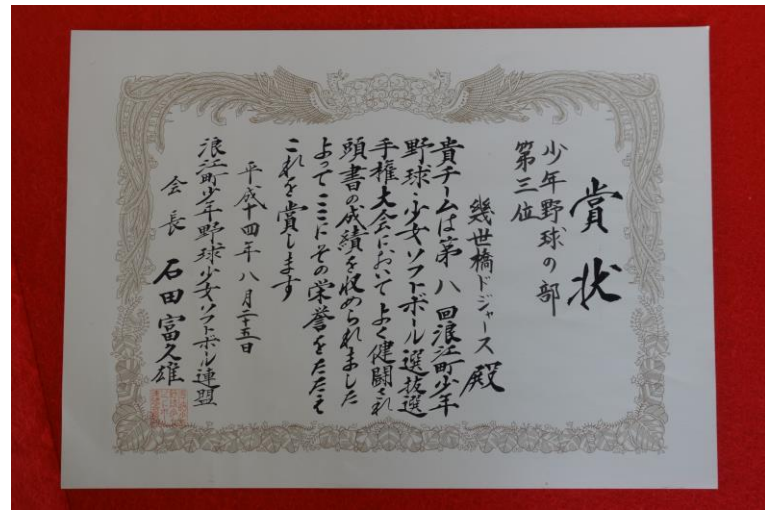 賞状
少年野球の部
第三位
幾世橋ドジャース殿
貴チームは第八回浪江町少年
野球・少女ソフトボール選抜選
手権大会において よく健闘され
頭書の成績を収められました
よってここにその栄誉をたたえ
これを賞します
平成十四年八月二十五日
浪江町少年野球少女ソフトボール連盟
会長 石田富久雄